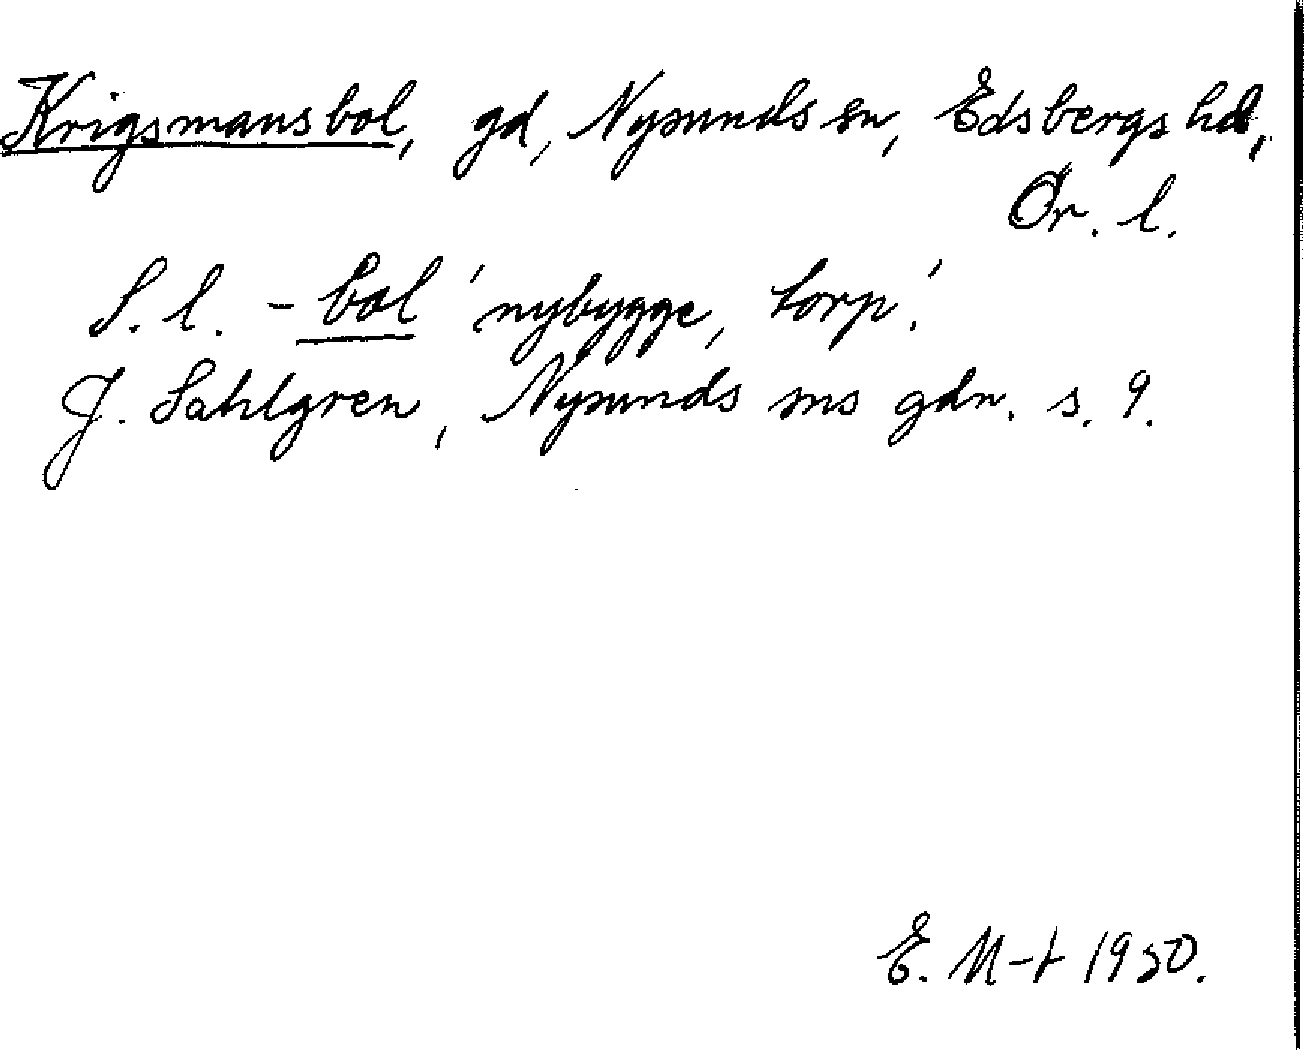 Krigsmansbol, gd, Nysunds sn, Edsbergs hd,
Ör. l.
S. l. -bol 'nybygge, torp'.
J. Sahlgren, Nysunds sns gdn. s. 9.
E. M-t 1930.